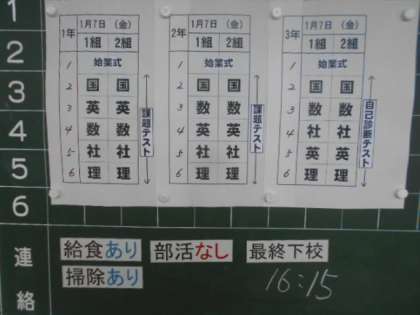 1
2
3
4
5
6
連絡
1年 1月7日 (金)
1組 2組
1 始業式
2 国 国
3 英 英
4 数 数
5 社 社
6 理 理
課題テスト
2年 1月7日 (金)
1組 2組
1 始業式
2 国 国
3 数 数
4 英 英
5 社 社
6 理 理
課題テスト
3年 1月7日 (金)
1組 2組
1 始業式
2 国 国
3 数 数
4 社 社
5 英 英
6 理 理
自己診断テスト
給食あり 部活なし 最終下校
掃除あり 16:15